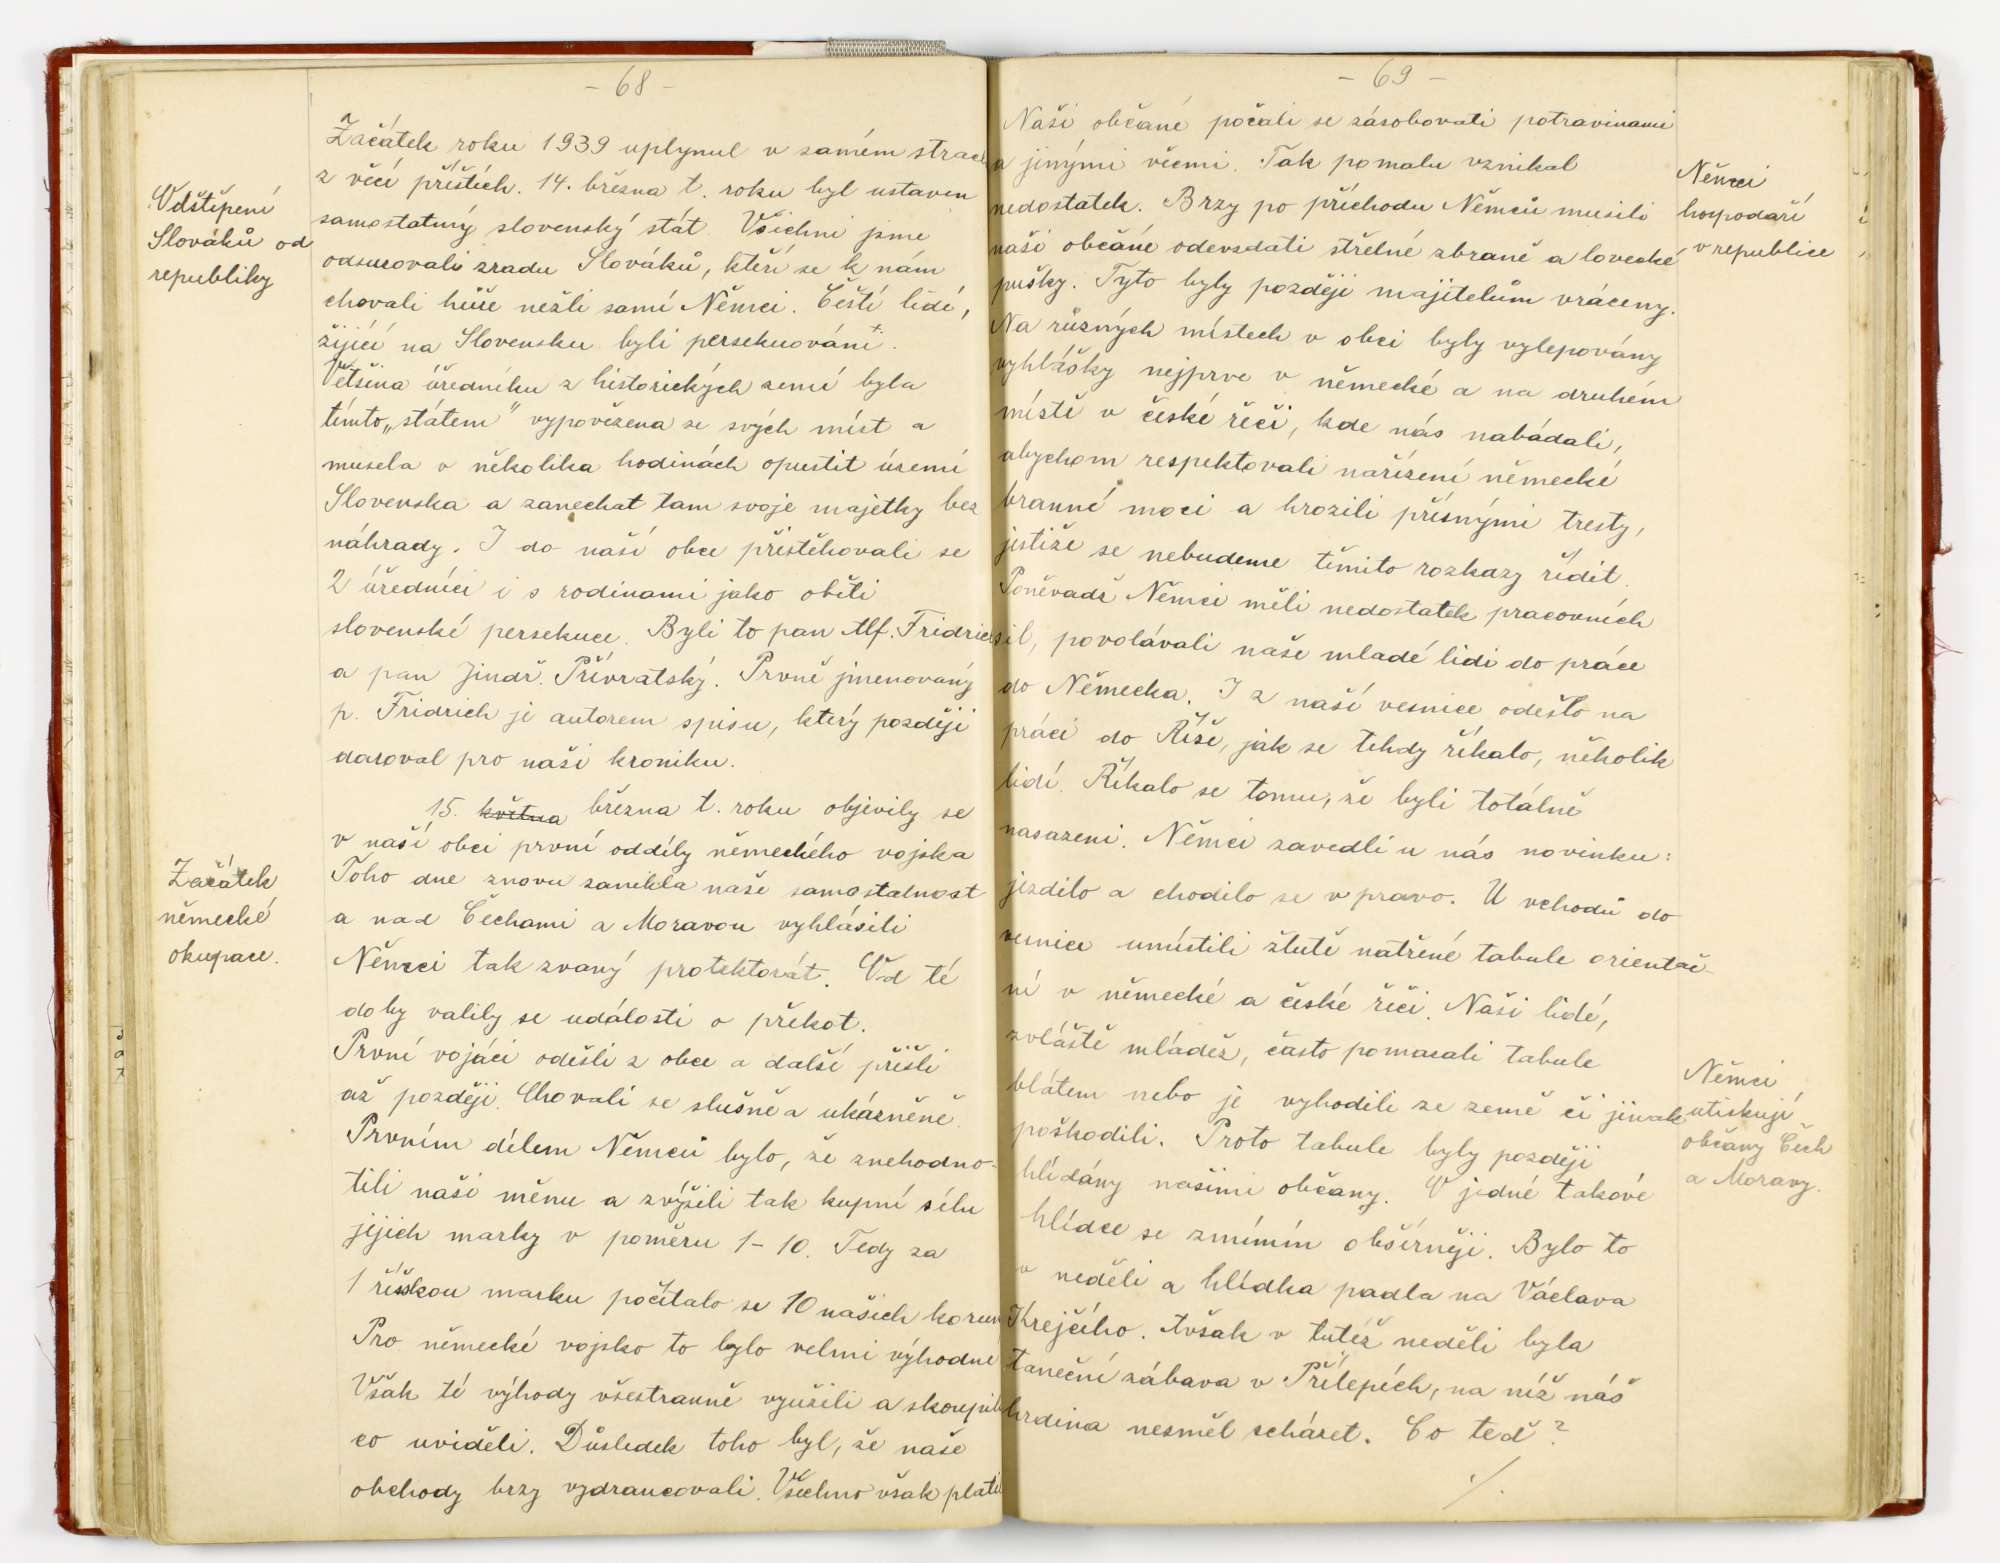 - 68 -
Odštěpení
Slováků od
republiky
Začátek roku 1939 uplynul v samém strach
z věcí příštích. 14. března t. roku byl ustaven
samostatný slovenský stát. Všichni jsme
odsuzovali zradu Slováků, kteří se k nám
chovali hůře nežli samí Němci. Čeští lidé,
žijící na Slovensku byli persekuováni.
Většina úředníku z historických zemí byla
tímto „státem" vypovězena se svých míst a
musela v několika hodinách opustit území
Slovenska a zanechat tam svoje majetky bez
náhrady. I do naší obce přistěhovali se
2 úředníci i s rodinami jako oběti
slovenské persekuce. Byli to pan Alf. Fridrich
a pan Jindř. Přívratský. Prvně jmenovaný
p. Fridrich je autorem spisu, který později
daroval pro naši kroniku.
Začátek
německé
okupace.
15. května března t. roku objevily se
v naší obci první oddíly německého vojska
Toho dne znovu zanikla naše samostatnost
a nad Čechami a Moravou vyhlásili
Němci tak zvaný protektorát. Od té
doby valily se události o překot.
První vojáci odešli z obce a další přišli
až později. Chovali se slušně a ukázněně.
Prvním dílem Němců bylo, že znehodno-
tili naši měnu a zvýšili tak kupní sílu
jejich marky v poměru 1-10. Tedy za
1 říškou marku počítalo se 10 našich korun
Pro německé vojsko to bylo velmi výhodné
Však té výhody všestranně využili a skoupili
co uviděli. Důsledek toho byl, že naše
obchody brzy vydrancovali. Všechno však platil
- 69 -
Naši občané počali se zásobovati potravinami
a jinými věcmi. Tak pomalu vznikal
nedostatek. Brzy po příchodu Němců musili
naši občané odevzdati střelné zbraně a lovecké
pušky. Tyto byly později majitelům vráceny.
Na různých místech v obci byly vylepovány
vyhlášky nejprve v německé a na druhém
místě v české řeči, kde nás nabádali,
abychom respektovali nařízení německé
branné moci a hrozili přísnými tresty,
jestiže se nebudeme těmito rozkazy řídit.
Poněvadž Němci měli nedostatek pracovních
sil, povolávali naše mladé lidi do práce
do Německa. I z naší vesnice odešlo na
práci do Říše, jak se tehdy říkalo, několik
lidí. Říkalo se tomu, že byli totálně
nasazeni. Němci zavedli u nás novinku:
jezdilo a chodilo se vpravo. U vchodů do
vesnice umístili žlutě natřené tabule orientač-
ní v německé a české řeči. Naši lidé,
zvláště mládež, často pomazali tabule
blátem nebo je vyhodili ze země či jinak
poškodili. Proto tabule byly později
hlídány našimi občany. O jedné takové
hlídce se zmíním obšírněji. Bylo to
v neděli a hlídka padla na Václava
Krejčího. Avšak v tutéž neděli byla
taneční zábava v Přílepích, na níž náš
hrdina nesměl scházet. Co teď?
./.
Němci
hospodaří
v republice
Němci
utiskují
občany Čech
a Moravy.